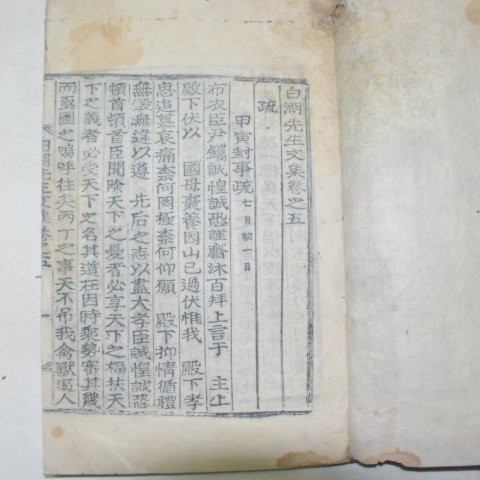 白湖先生文集卷之五
疏
甲寅封事疏 七月初一日
布衣臣尹鑴誠惶誠恐謹齋沐百拜上言于 主上
殿下伏以 國母喪養因山已過伏惟我 殿下孝
思追尊哀痛柰何罔極柰何仰願 殿下抑情循禮
無毀無違以遵 先后之志以盡大孝臣誠惶誠恐
頓首頓首臣聞除天下之憂者必享天下之福扶天
下之義者必受天下之名其道在因時乘勢審其幾
而亟圖之嗚呼往矣丙丁之事天不吊我禽獸逼人
白湖先生文集卷之五 一